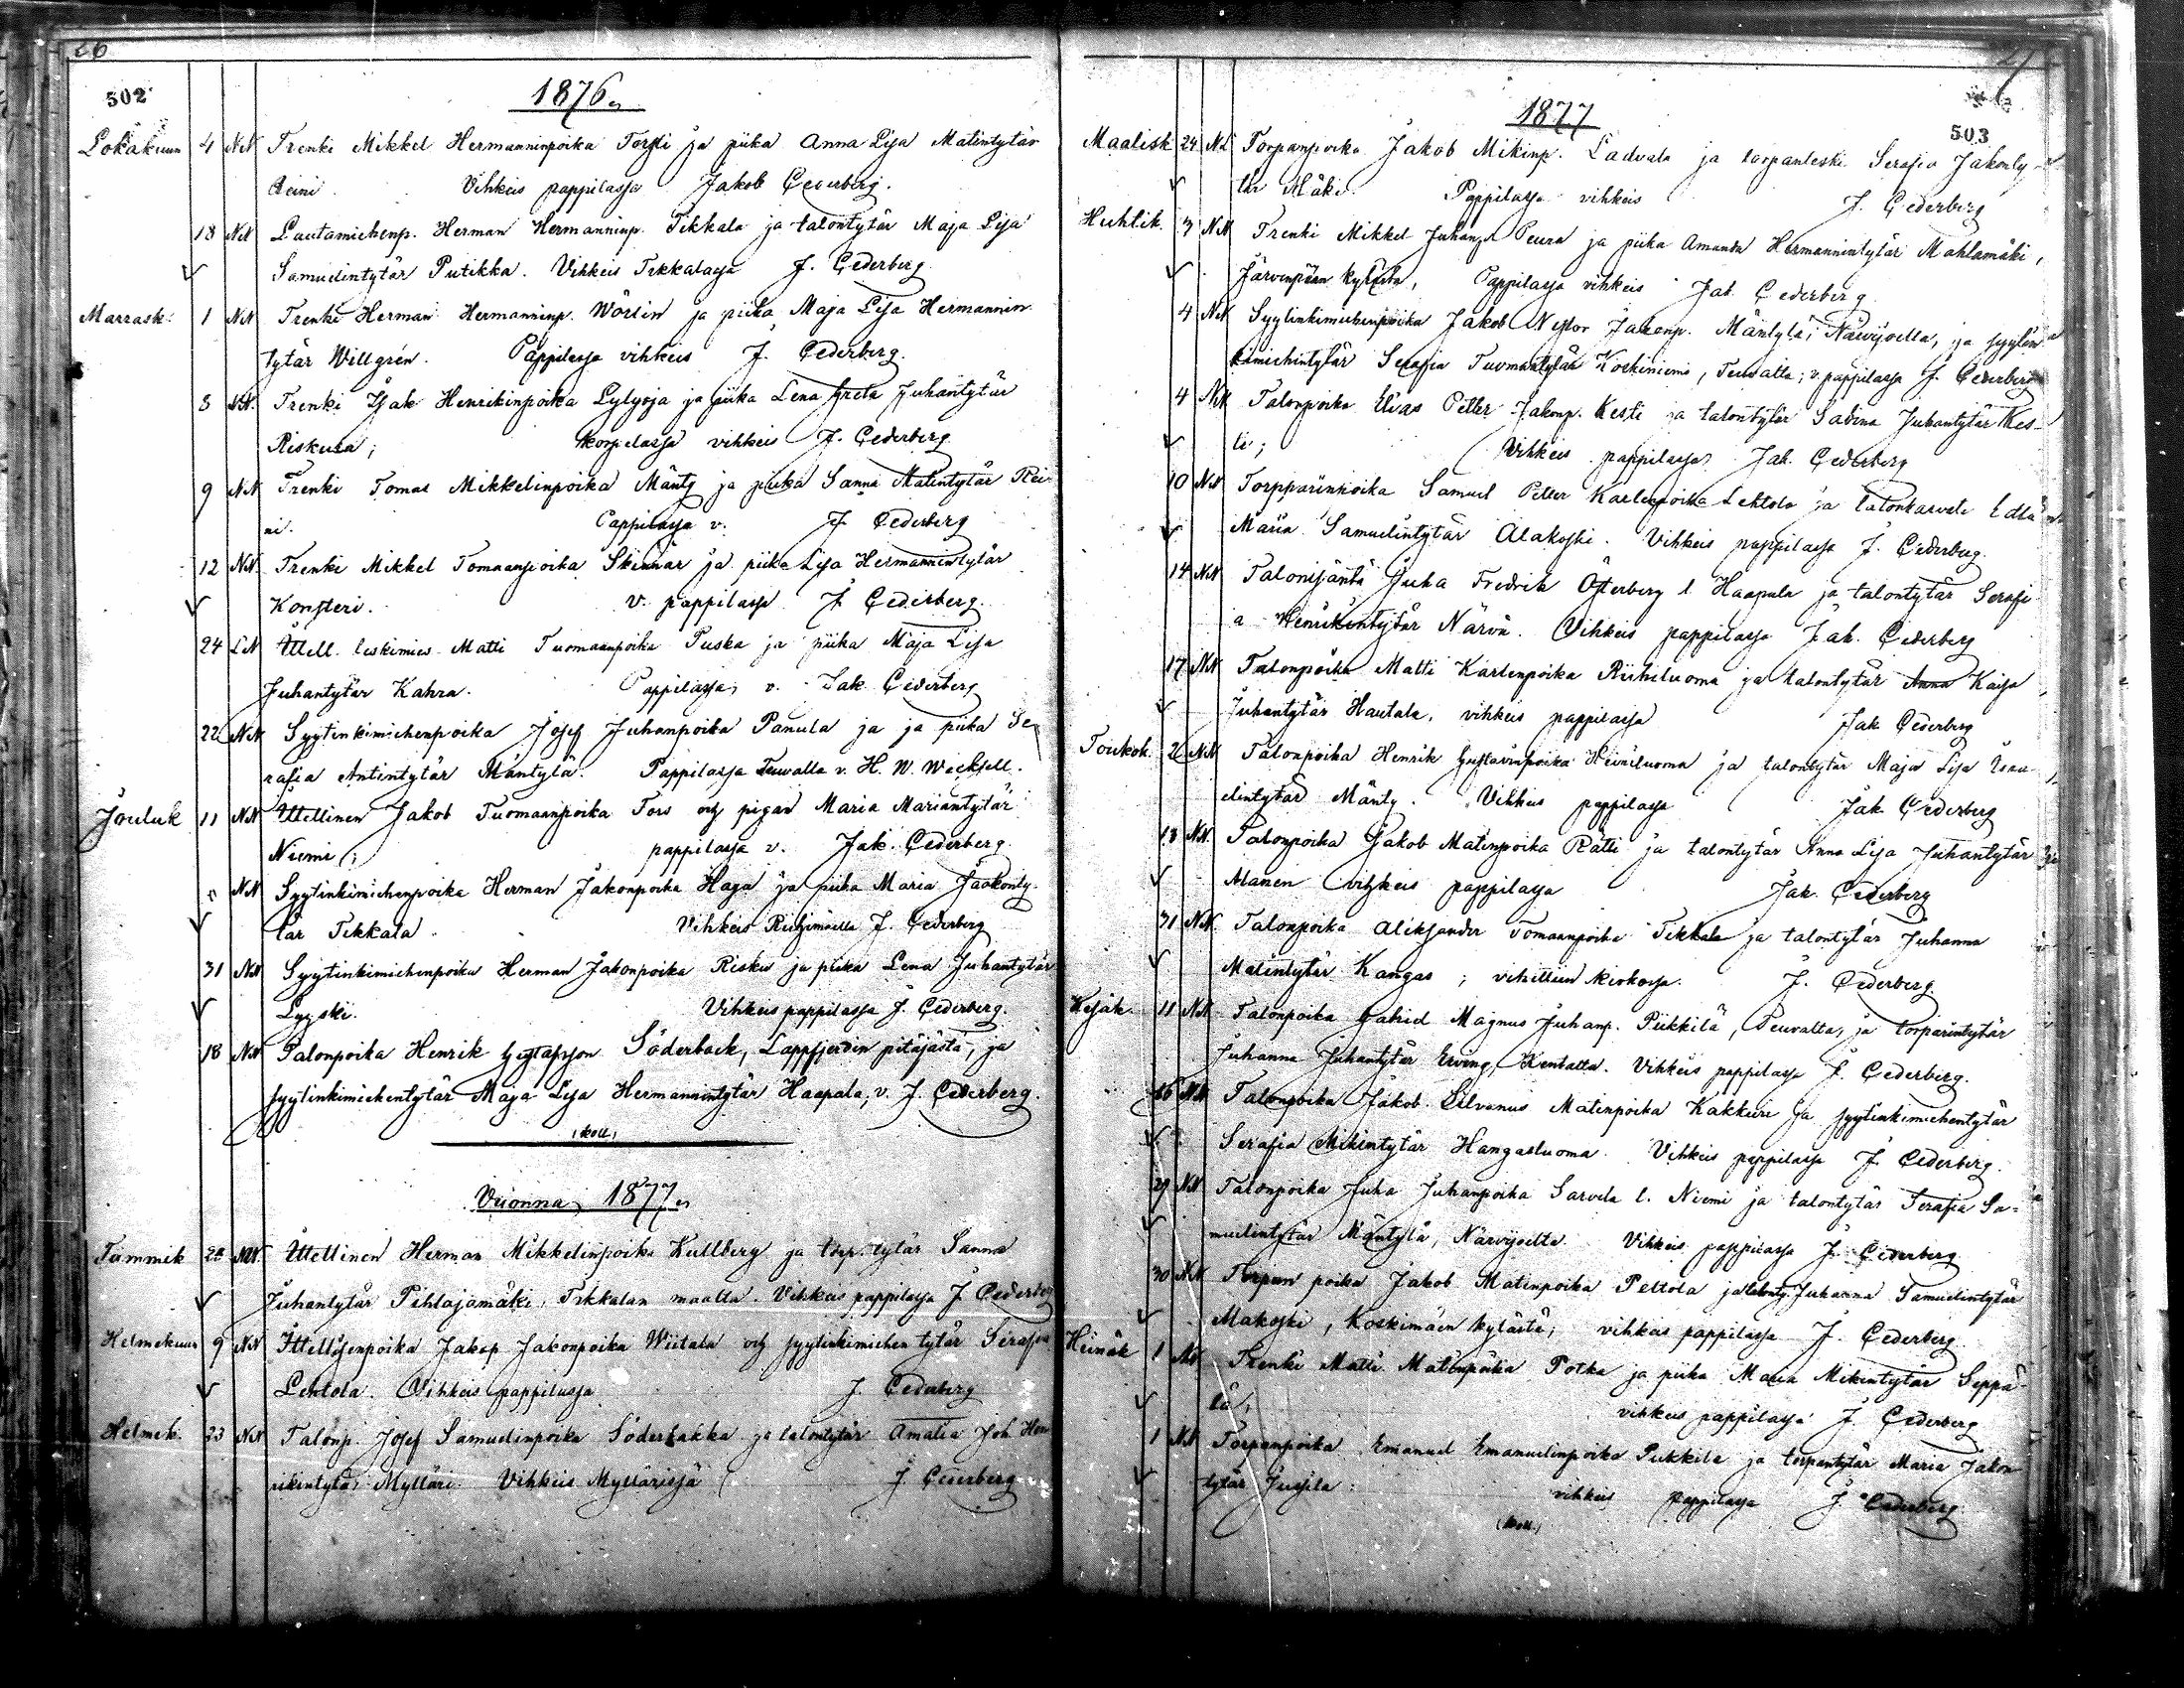 26
502
1876.
Lokakuun 4 NN Trenki Mikkel Hermanninpoika Torsti ja piika Anna Lisa Matintytär
Reini. Vihkeis pappilassa Jakob Cederberg.
18 NN Lautamichenp. Herman Hermanninp. Tikkala ja talontytär Maja Lisa
Samuelintytär Putikka. Vihkeis Tikkalassa J. Cederberg
Marrask. 1 NN Trenki Herman Hermanninp. Wörlin ja piika Maja Lisa Hermannin
tytär Willgrén. Pappilassa vihkeis J. Cederberg.
8 NN. Trenki Isak Henrikinpoika Lylyoja ja piika Lena Greta Juhantytär
Riskula; Korpelassa vihkeis J. Cederberg.
9 NN Trenki Tomas Mikkelinpoika Mänty ja piika Sanna Matintytär Rei
ni. Pappilassa v. J. Cederberg
12 NN. Trenki Mikkel Tomaanpoika Skinnar ja piika Lisa Hermannintytär
Konsteri. v. pappilassa J. Cederberg.
24 LN Ittell. leskimies Matti Tuomaanpoika Puska ja piika Maja Lisa
Juhantytär Kahra. Pappilassa v. Jak. Cederberg
22 NN Syytinkimichenpoika Josef Juhanpoika Panula ja ja piika Se
rafia Antintytär Mäntylä. Pappilassa Teuvalla v. H. W. Wacklell.
Jouluk 11 NN Ittellinen Jakob Tuomaanpoika Tors och pigan Maria Mariantytär
Niemi; pappilassa v. Jak. Cederberg.
" NN Syytinkimichenpoika Herman Jakonpoika Haga ja piika Maria Jaakonty-
tär Tikkala. Vihkeis Riihimäellä J. Cederberg
31 NN Syytinkimichenpoika Herman Jakonpoika Risku ja piika Lena Juhantytär
Lyyski. Vihkeis pappilassa J. Cederberg.
18 NN Talonpoika Henrik Gustafsson Söderback, Lappfjerdin pitäjästä, ja
syytinkimichentytär Maja Lisa Hermannintytär Haapala, v. J. Cederberg.
(koll)
Vuonna 1877.
Tammik 28 NN. Ittellinen Herman Mikkelinpoika Kullberg ja torp. tytär Sanna
Juhantytär Pihlajamäki, Tikkalan maalla. Vihkeis pappilassa J. Cederberg
Helmekuun 9 NN Ittellisenpoika Jakop Jakonpoika Wiitala och syytinkimichen tytär Serafia
Lehtola. Vihkeis pappilassa J. Cederberg
Helmek. 23 NN Talonp. Josef Samuelinpoika Söderbakka ja talontytär Amalia Joh. Hen
rikintytär Mylläri. Vihkeis Myllärissä J. Cederberg
27
503
1877
Maalisk 24 NL Torpanpoika Jakob Mikinp. Ladvala ja torpanleski Serafia Jakonty-
tär Mäki. Pappilassa vihkeis J. Cederberg
Huhtik. 3 NN Trenki Mikkel Juhanp. Peura ja piika Amanda Hermannintytär Mahlamäki,
Järvenpään kylästä, Pappilassa vihkeis Jak. Cederberg
4 NN Syytinkimichenpoika Jakob Nestor Jakonp. Mäntylä, Närvijoella, ja syytin
kimichintytär Serafia Tuomantytär Koskiniemi, Teuvalta; v. pappilassa J. Cederberg
4 NN Talonpoika Elias Petter Jakonp. Kesti ja talontytär Sabina Juhantytär Kes-
ti; Vihkeis pappilassa Jak. Cederberg
10 NN Torpparinpoika Samuel Petter Karlenpoika Lehtola ja talonkasvate
Maria Samuelintytär Alakoski. Vihkeis pappilassa J. Cederberg.
14 NN Talonisäntä Juha Fredrik Österberg l. Haapala ja talontytär Serafi
a Henrikintytär Närvä. Vihkeis pappilassa Jak. Cederberg
17 NN Talonpoika Matti Karlenpoika Riihiluoma ja talontytär Anna Kaisa
Juhantytär Hautala, vihkeis pappilassa Jak Cederberg
Toukok. 2 NN Talonpoika Henrik Gustavinpoika Heiniluoma ja talontytär Maja Lisa
elintytär Mänty. Vihkeis pappilassa Jak Cederberg
13 NN. Talonpoika Jakob Matinpoika Rätti ja talontytär Anna Lisa Juhantytär
Manen vihkeis pappilassa Jak. Cederberg
31 NN. Talonpoika Aliksander Tomaanpoika Tikkala ja talontytär Juhanna
Matintytär Kangas; vihittiin kirkossa. J. Cederberg.
Kesäk. 11 NN Talonpoika Gabriel Magnus Juhanp. Piikkilä, Teuvalta, ja torparintytär
Juhanna Juhantytär Erving, Kentalla. Vihkeis pappilassa J. Cederberg.
26 NN Talonpoika Jakob Silvanus Matinpoika Kakkuri ja syytinkimichentytär
Serafia Mikintytär Hangasluoma. Vihkeis pappilassa J. Cederberg.
29 NN Talonpoika Juha Juhanpoika Sarvela l. Niemi ja talontytär Serafia Sa-
muelintytär Mäntylä, Närvijoelta. Vihkeis pappilassa J. Cederberg
30 NN Torpan poika Jakob Matinpoika Peltola ja talonty. Juhanna Samuelintytär
Makoski, Koskimäen kylästä; vihkeis pappilassa J. Cederberg.
Heinäk 1 NN Trenki Matti Matinpoika Potka ja piika Maria Mikintytär Seppä-
lä, vihkeis pappilassa J. Cederberg
1 NN Torpanpoika Emanuel Emanuelinpoika Pukkila ja torpantytär Maria Jakon
tytär Jussila: vihkeis pappilassa J. Cederberg.
(koll.)